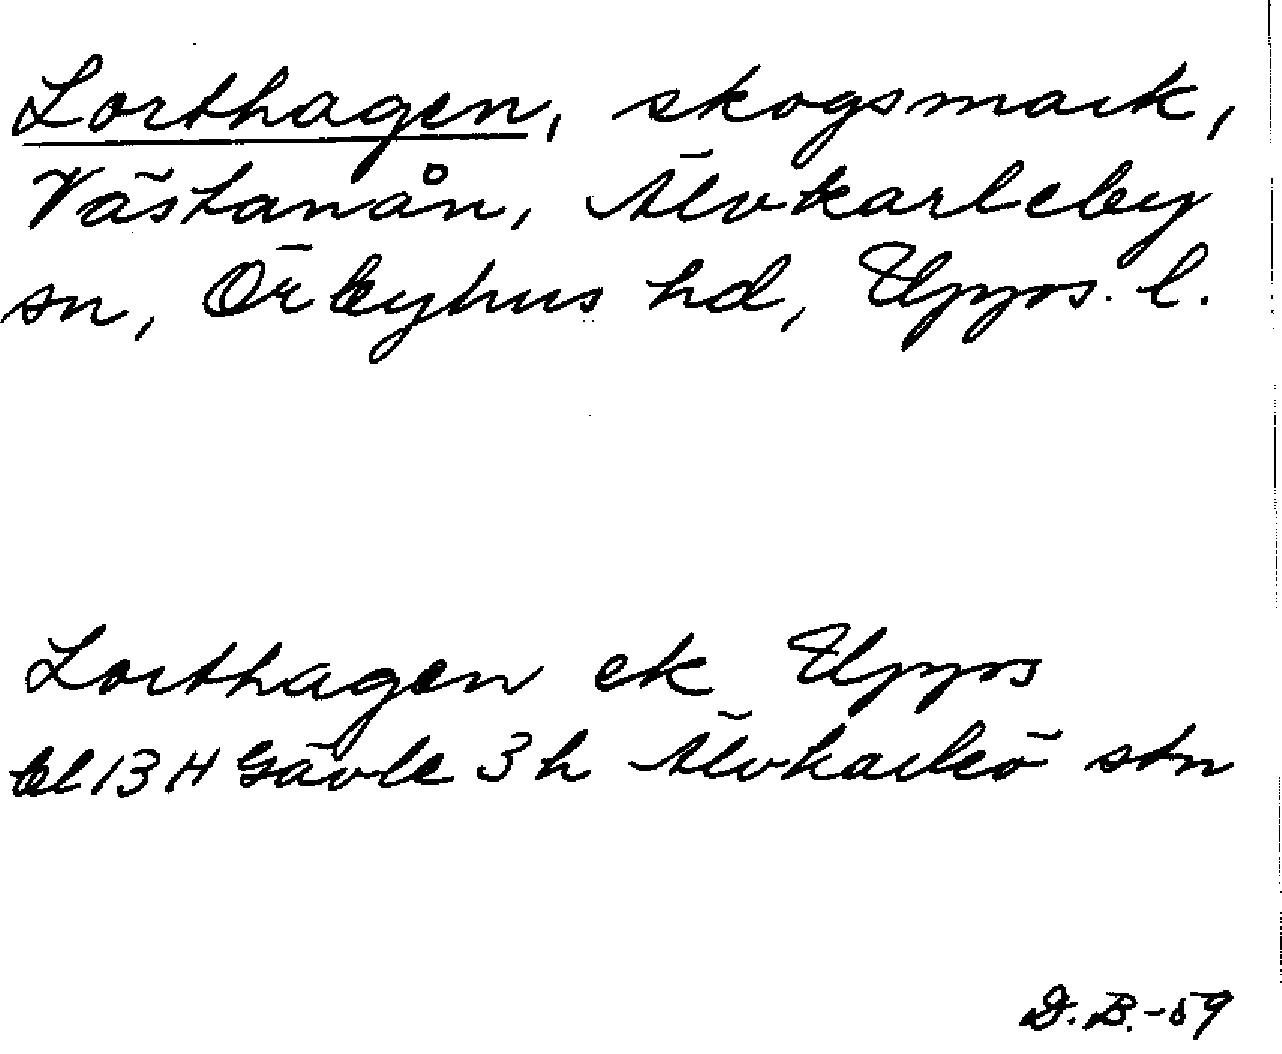 Lorthagen, skogsmark,
Västanån, Älvkarleby
sn, Örbyhus hd, Upps. l.
Lorthagen ek Upps
bl 13 H Gävle 3h Älvkarleö stn
D.B.-59